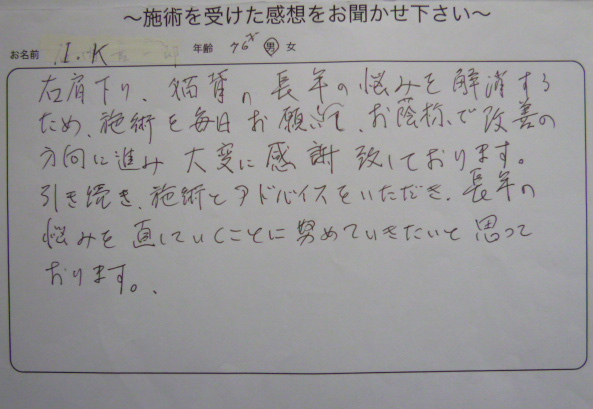 ～施術を受けた感想をお聞かせ下さい～
お名前 I.K 年齢 76才 男 女
右肩下り、猫背の長年の悩みを解消する
ため、施術を毎日お願いして、お蔭称で改善の
方向に進み大変に感謝致しております。
引き続き、施術とアドバイスをいただき、長年の
悩みを直していくことに努めていきたいと思って
おります。